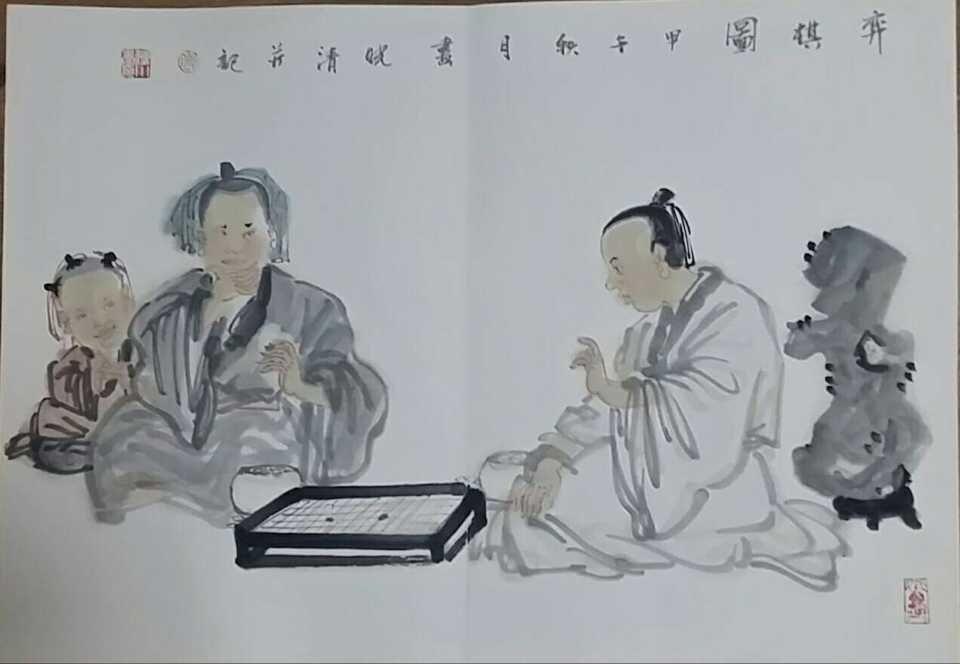 弈棋圖甲午秋月晓清并記